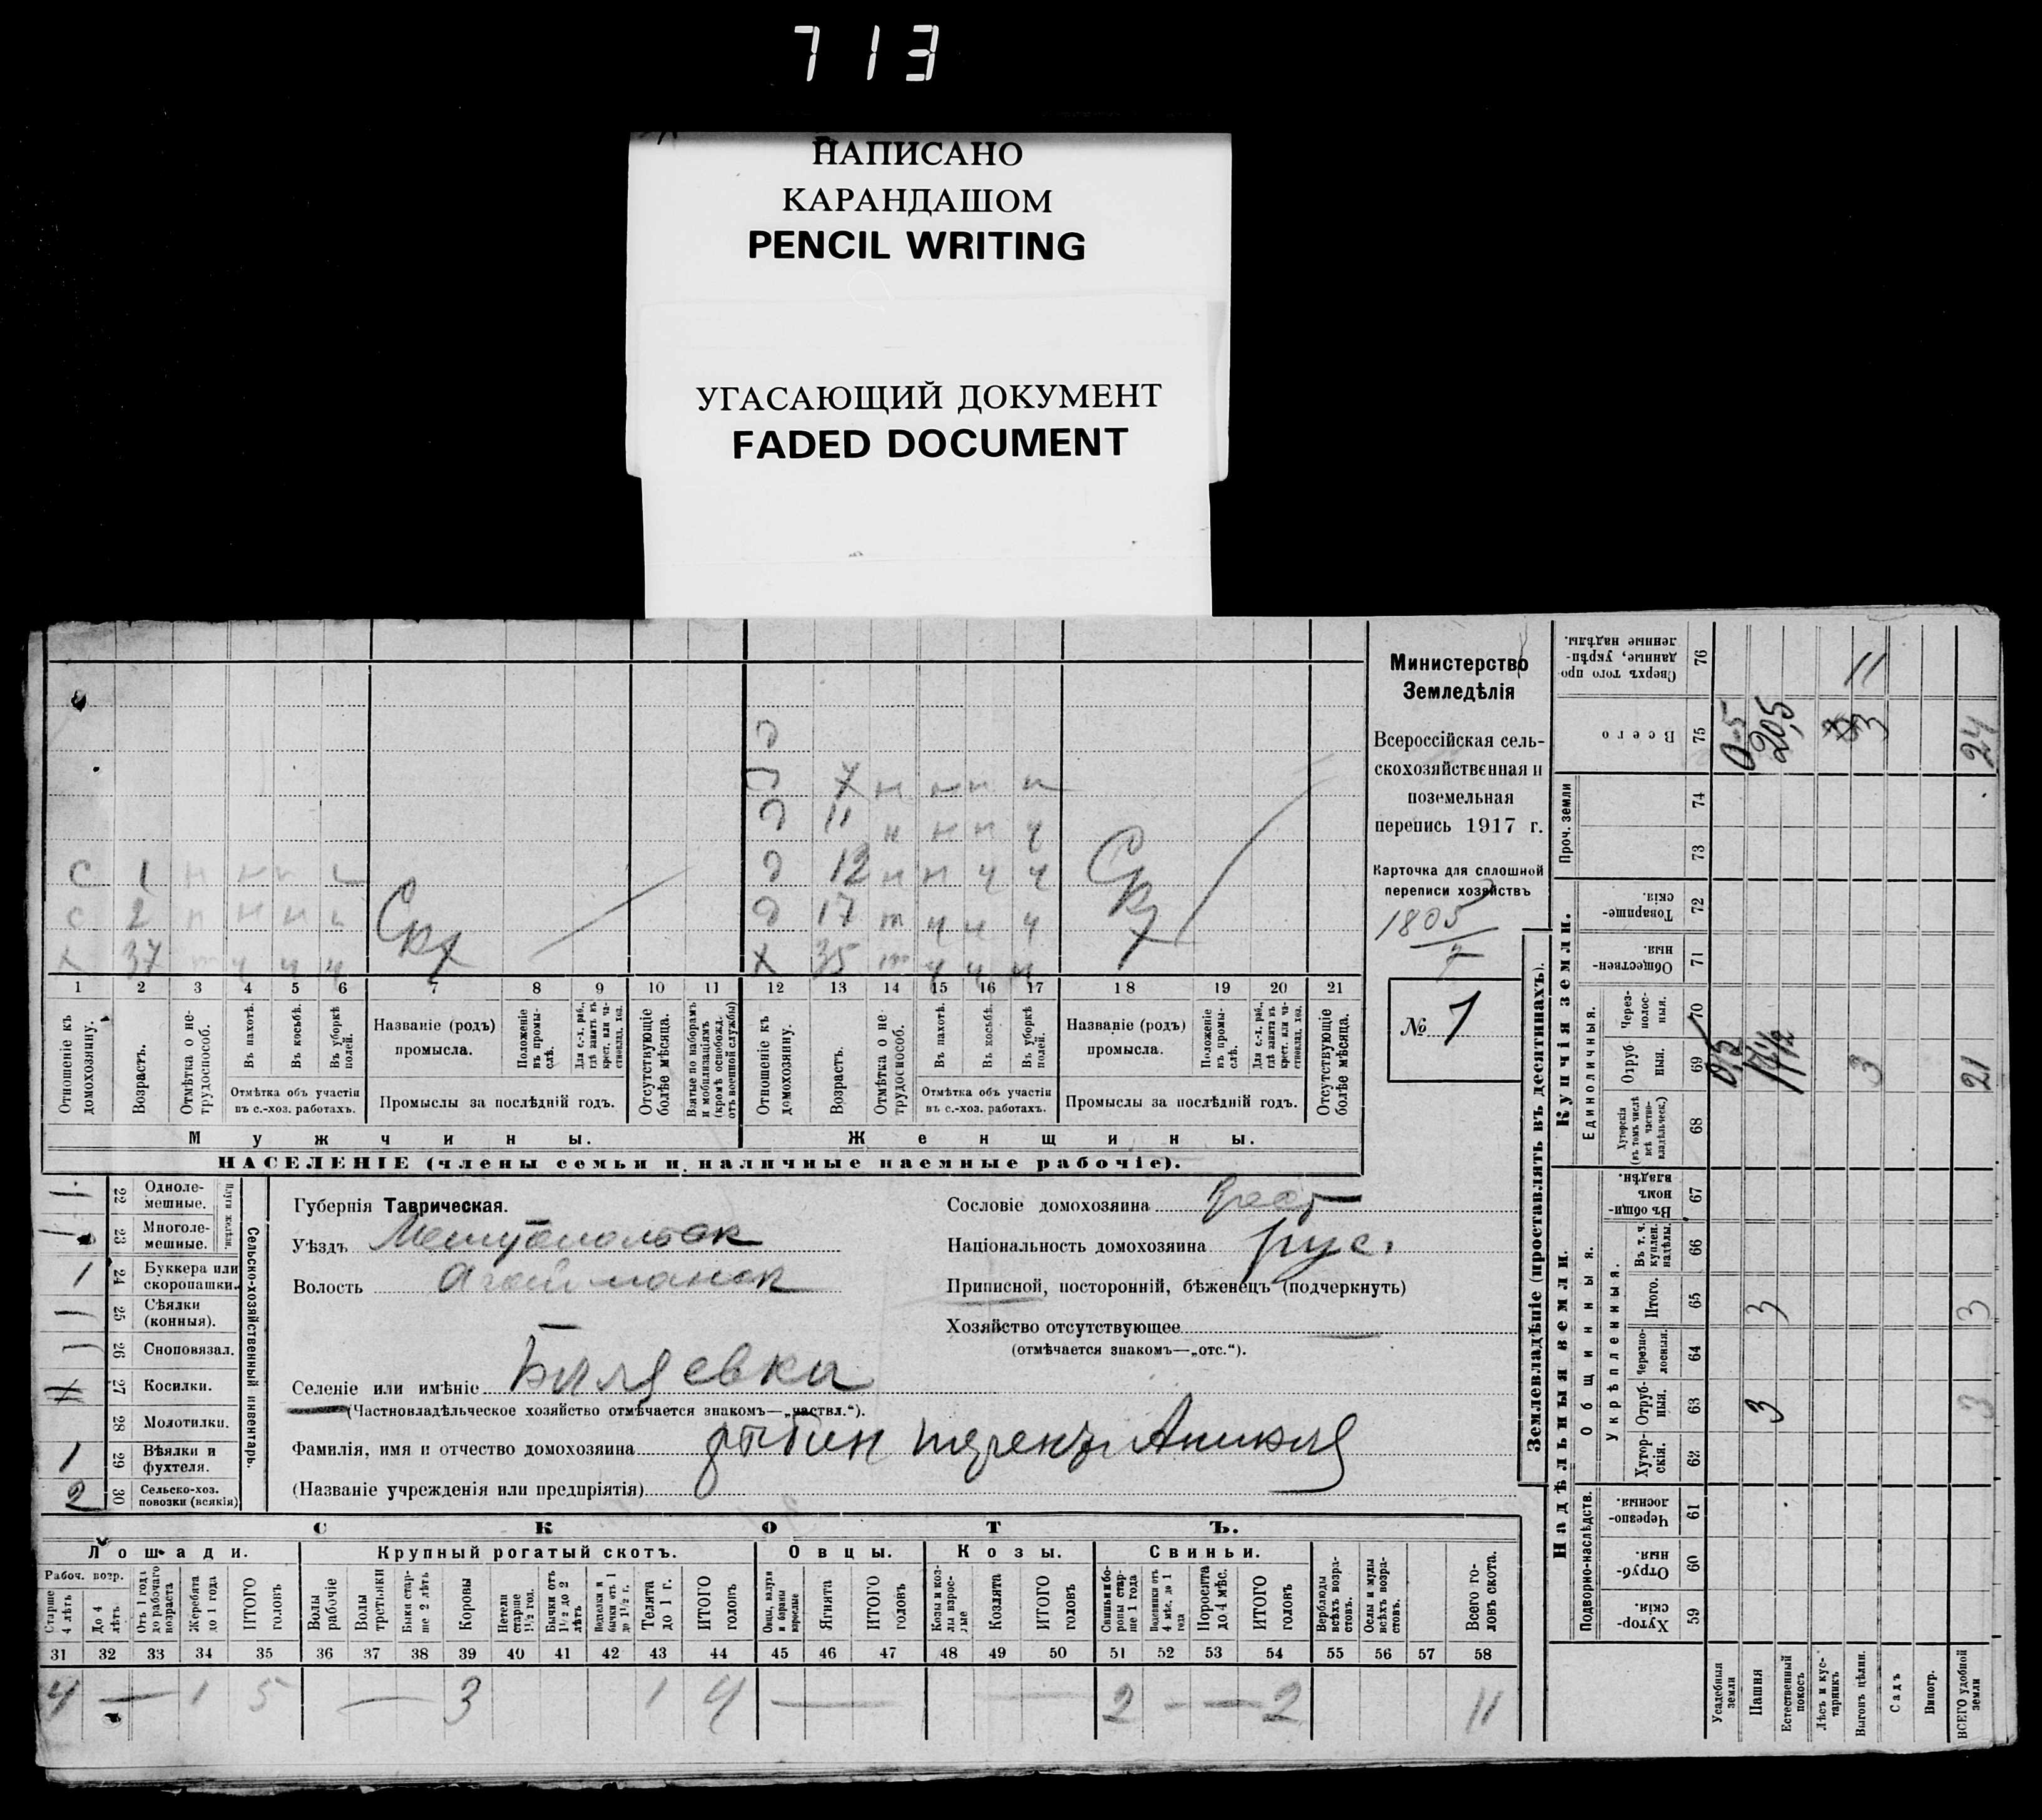 713
НАПИСАНО
КАРАНДАШОМ
PENCIL WRITING
УГАСАЮЩИЙ ДОКУМЕНТ
FADED DOCUMENT
Министерство
Земледѣлія
Всероссійская сель-
скохозяйственная и
поземельная
перепись 1917 г.
Карточка для сплошной
переписи хозяйствъ
1805
№ 1
д
д 7 н н н н
д 11 н н н ч
с 1 н н н н
д 12 н н ч ч
с 2 н н н н
д 17 т ч ч ч
х 37 т ч ч ч
х 35 т ч ч ч
1 2 3 4 5 6 7 8 9 10 11 12 13 14 15 16 17 18 19 20 21
Отношеніе къ домохозяину.
Возрастъ.
Отмѣтка о не-трудоспособ.
Въ пахотѣ.
Въ косьбѣ.
Въ уборкѣ полей.
Отмѣтка объ участіи
въ с.-хоз. работахъ.
Названіе (родъ)
промысла.
Положеніе въ промы-слѣ.
Для с.-х. раб., гдѣ занятъ въ крест. или ча-стновлад. хоз.
Промыслы за послѣдній годъ.
Отсутствующіе болѣе мѣсяца.
Взятые по наборамъ и мобилизаціямъ (кромѣ освобожд. отъ военной службы)
Отношеніе къ домохозяину.
Возрастъ.
Отмѣтка о не-трудоспособ.
Въ пахотѣ.
Въ косьбѣ.
Въ уборкѣ полей.
Отмѣтка объ участіи
въ с.-хоз. работахъ.
Названіе (родъ)
промысла.
Положеніе въ промы-слѣ.
Для с.-х. раб., гдѣ занята въ крест. или ча-стновлад. хоз.
Промыслы за послѣдній годъ.
Отсутствующіе болѣе мѣсяца.
Мужчины.
Женщины.
НАСЕЛЕНІЕ (члены семьи и наличные наемные рабочіе).
22 Одноле-мешные.
23 Многоле-мешные.
Плуги желѣзн.
1 24 Буккера или скоропашки.
25 Сѣялки (конныя).
26 Сноповязал.
27 Косилки.
28 Молотилки.
1 29 Вѣялки и фухтеля.
2 30 Сельско-хоз. повозки (всякія)
Сельско-хозяйственный инвентарь.
Губернія Таврическая.
Уѣздъ
Волость
Селеніе или имѣніе
(Частновладѣльческое хозяйство отмѣчается знакомъ—„частвл.“).
Фамилія, имя и отчество домохозяина Рыбин
(Названіе учрежденія или предпріятія)
Сословіе домохозяина Крест
Національность домохозяина рус.
Приписной, посторонній, бѣженецъ (подчеркнуть)
Хозяйство отсутствующее
(отмѣчается знакомъ—„отс.“).
СКОТЪ.
Лошади. Крупный рогатый скотъ. Овцы. Козы. Свиньи.
Рабоч. возр.
Старше 4 лѣтъ
До 4 лѣтъ.
Отъ 1 года до рабочаго возраста
Жеребята до 1 года
ИТОГО головъ
Волы рабочіе
Волы третьяки
Быки стар-ше 2 лѣтъ
Коровы
Нетели старше 1½ год.
Бычки отъ 1½ до 2 лѣтъ
Телята до 1 г.
ИТОГО головъ
Овцы, валухи и бараны взрослые
Ягнята
ИТОГО головъ
Козлы и коз-лы взрос-лые
Козлята
ИТОГО головъ
Свиньи и бо-ровы стар-ше 1 года
Поросята до 4 мѣс.
ИТОГО головъ
Верблюды всѣхъ возра-стовъ.
Ослы и мулы всѣхъ возра-стовъ.
Всего го-ловъ скота.
31 32 33 34 35 36 37 38 39 40 41 42 43 44 45 46 47 48 49 50 51 52 53 54 55 56 57 58
4 — 1 5 — 3 1 4 — — 2 — — 2 11
Землевладѣніе (проставлять въ десятинахъ).
Надѣльныя земли.
Купчія земли.
Подворно-наслѣдств.
Общинныя.
Укрѣпленныя.
Единоличныя.
Проч. земли
Хутор-скія. 59
Отруб-ныя. 60
Черезпо-лосныя. 61
Хутор-скія. 62
Отруб-ныя. 63
Черезпо-лосныя. 64
Итого. 65
Въ т. ч. куплен. надѣлы. 66
Въ общи-нномъ владѣн. 67
Хуторскія (въ томъ числѣ всѣ частно-владѣльческ.) 68
Отруб-ныя. 69
Через-полос-ныя. 70
Обществен-ныя. 71
Товарище-скія. 72
73
74
Всего 75
Сверхъ того про-данные, укрѣп-ленные надѣлы. 76
Усадебныя земли
Пашня
Естественный покосъ
Лѣсъ и кус-тарникъ
Выгонъ цѣлин.
Садъ
Виногр.
ВСЕГО удобной земли
3 3
3 3
0,5 17½ 3 21
0,5 20,5 3 24
11